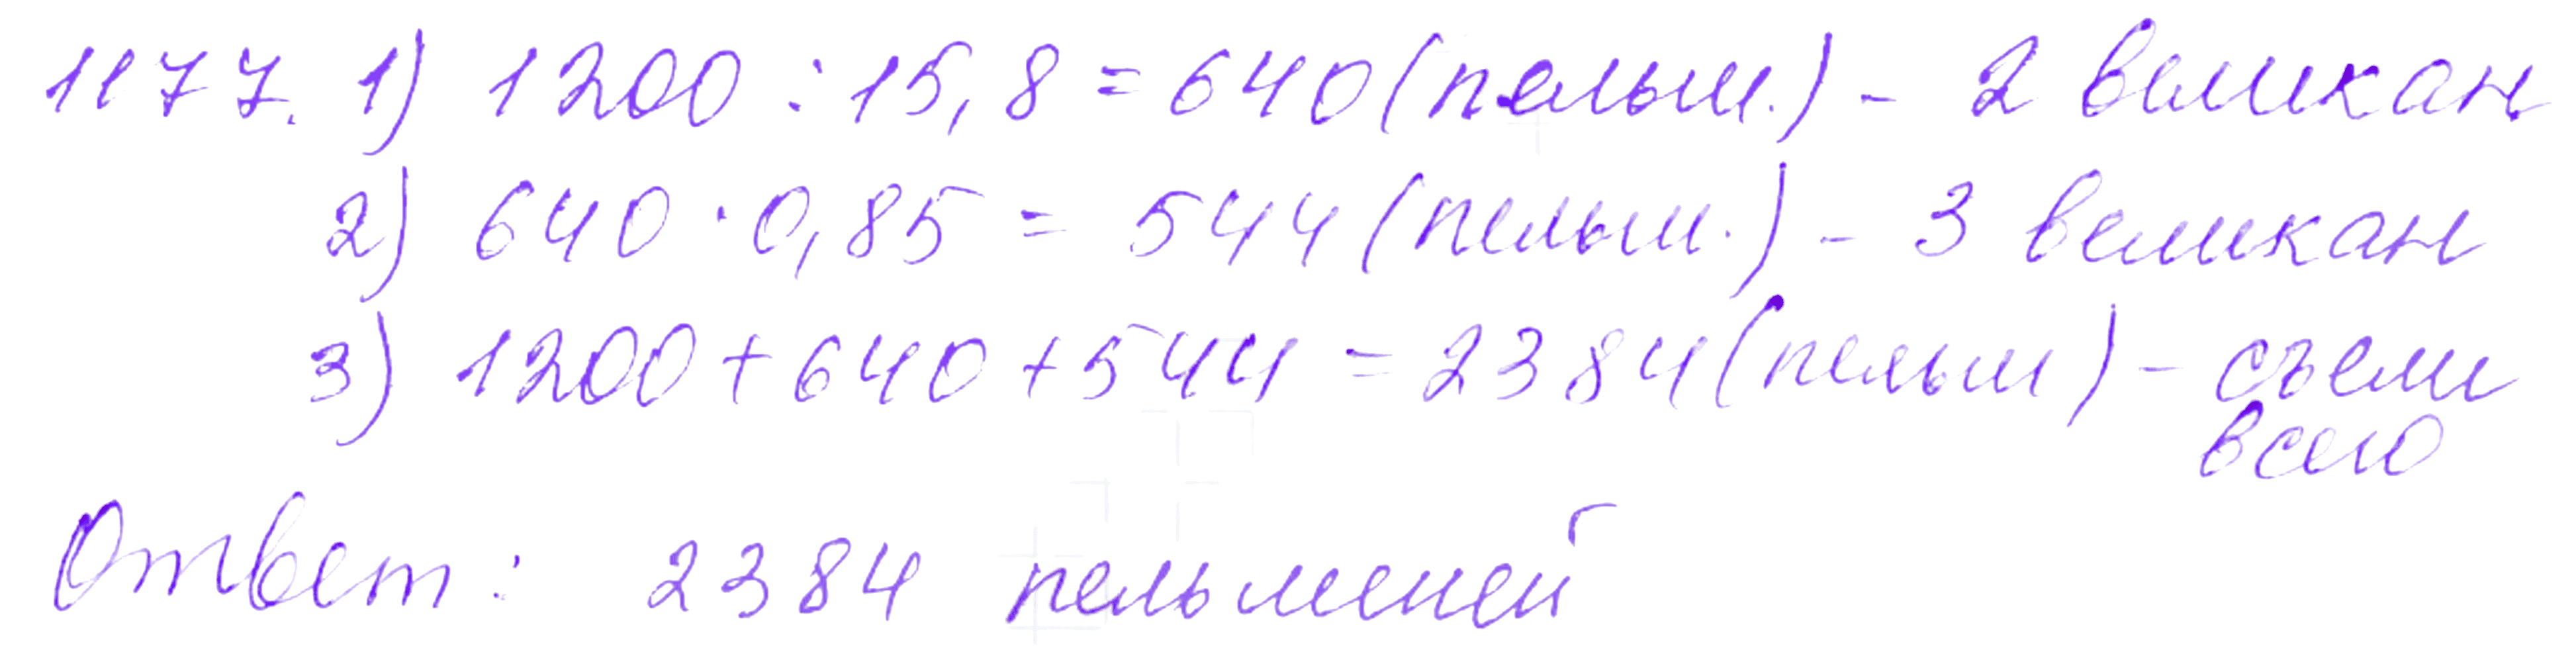 1177. 1) 1200 : 15,8 = 640 (пельм.) - 2 великан
2) 640 · 0,85 = 544 (пельм.) - 3 великан
3) 1200 + 640 + 544 = 2384 (пельм) - съели
всего
Ответ: 2384 пельменей